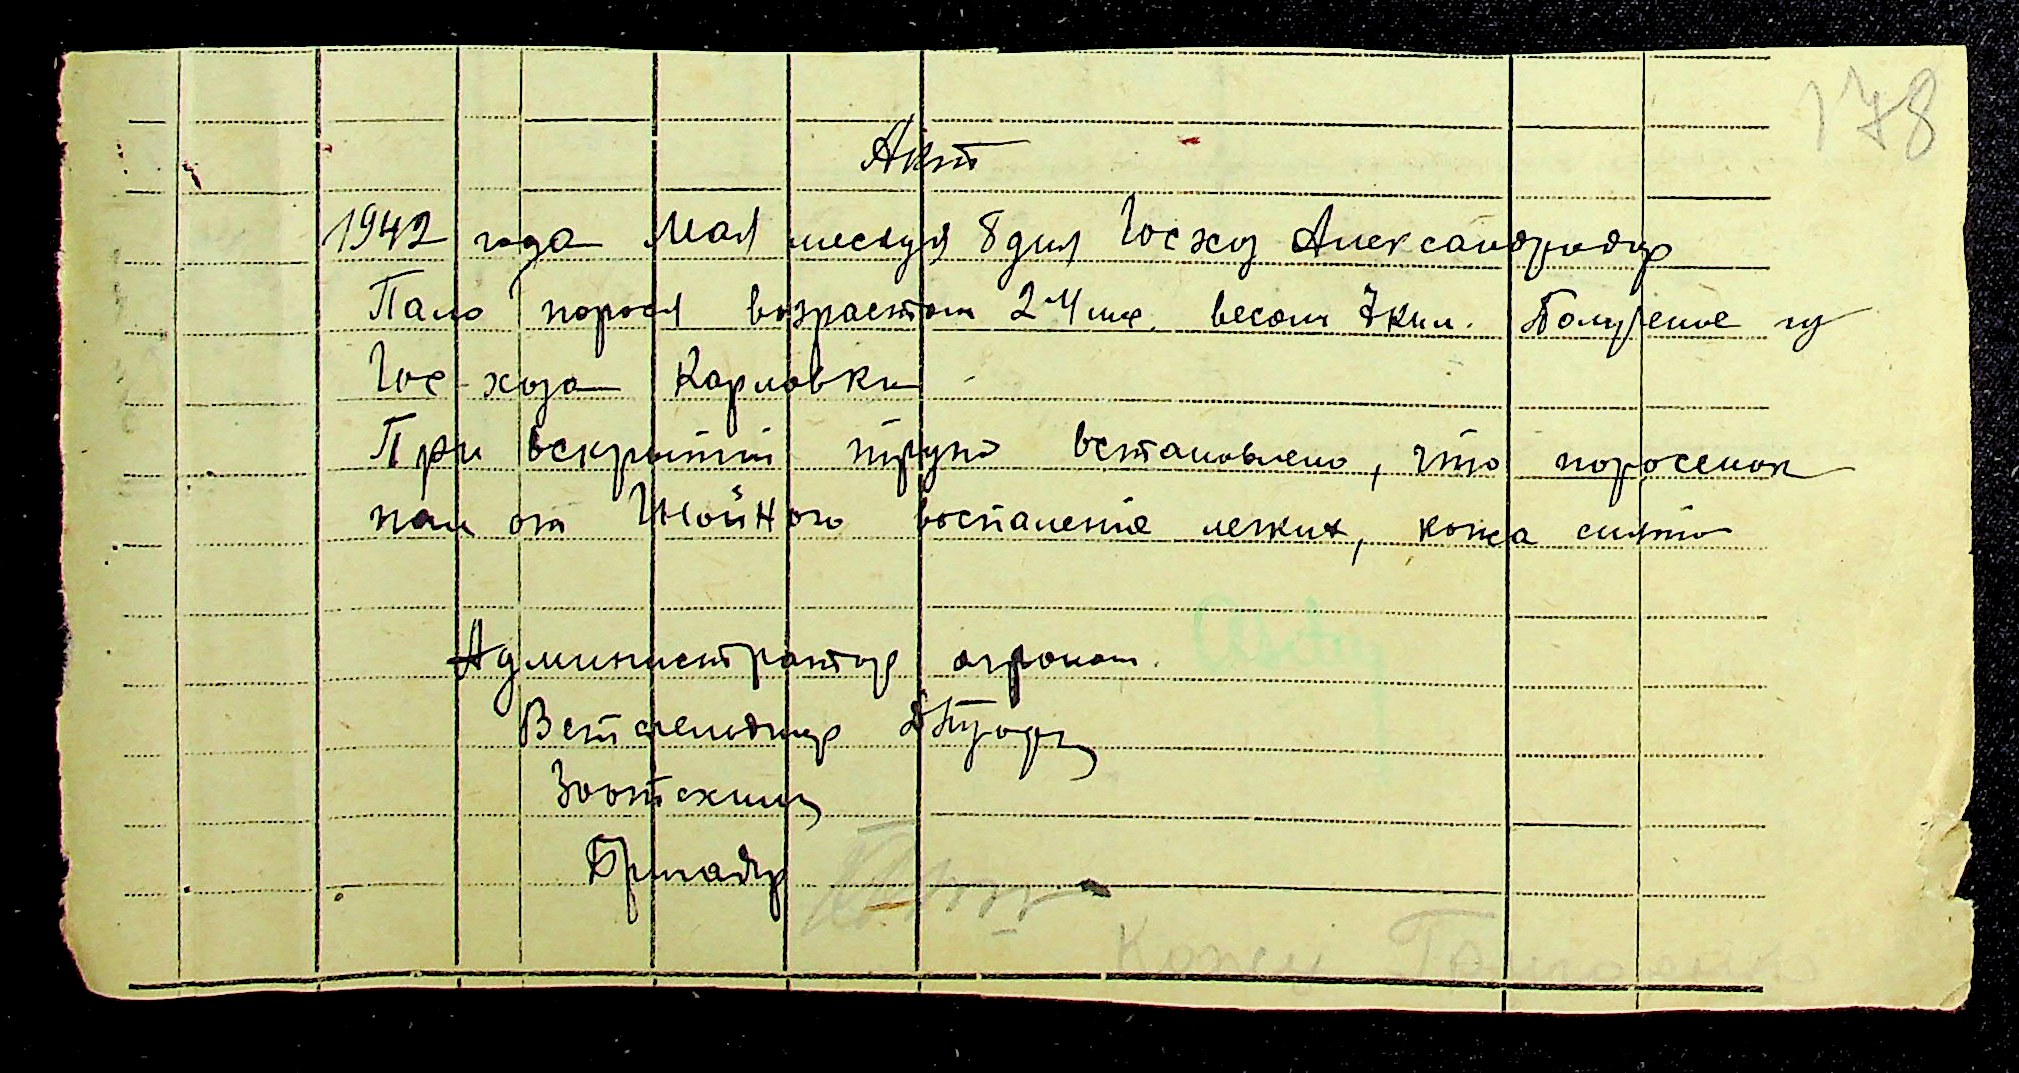 178
Акт
1942 года Мая месяця 8 дня Госхоз Александродар
Пало порося возрастом 2-4 мес. весом 7 кил. Получение из
Гос-хоза Карловки
При вскрытии трупа встановлено, что поросенок
пал от Гнойного воспаление легких, кожа снята
Администратор агроном.
Ветфельдшер
Зоотехник
Бригадир
Кожу